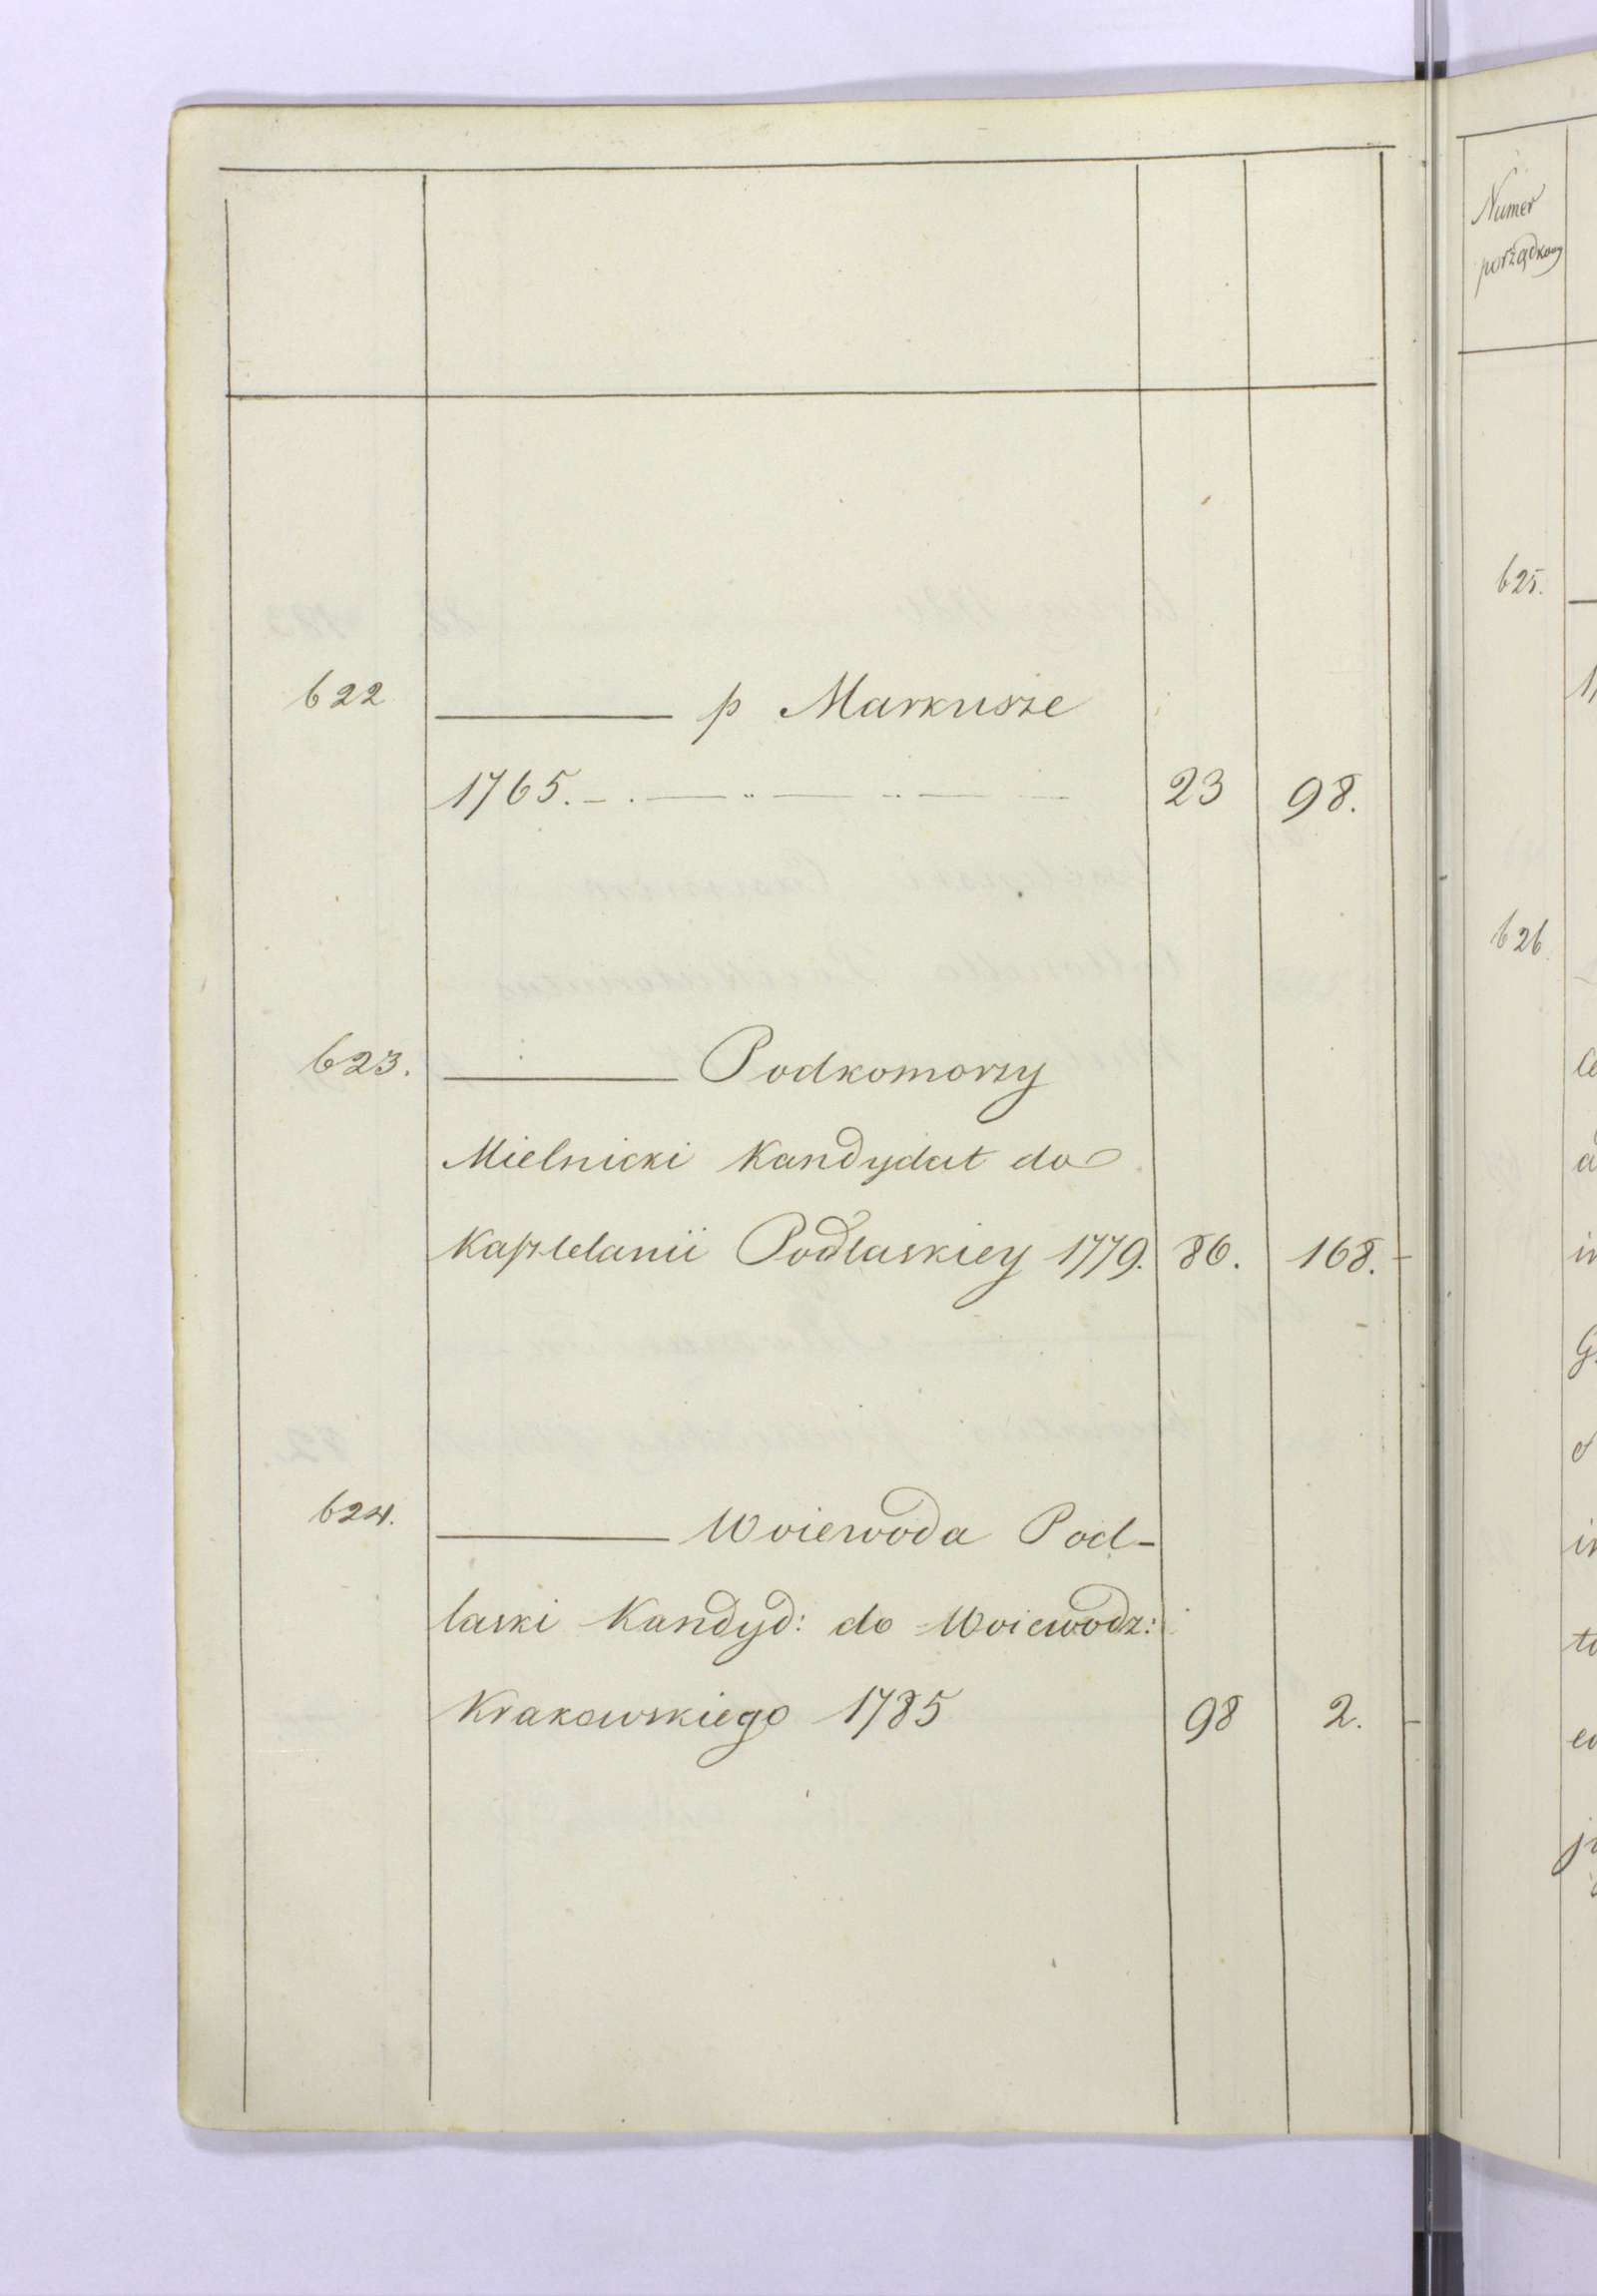 622 ——— p Markusze
1765. 23 98.
623. ——— Podkomorzy
Mielnicki Kandydat do
Kasztelanii Podlaskiey 1779. 86. 168.
624. ——— Woiewoda Pod-
laski Kandyd: do Woiewodz:
Krakowskiego 1785 98 2.
Numer
porządkowy
625.
626.